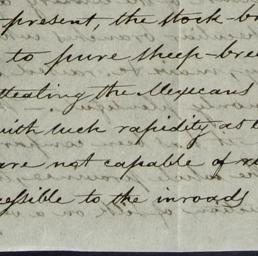 present, the stock-br
to pure sheep-bree
stealing the Mexicans
with such rapidity as t
are not capable of re
cessible to the inroads